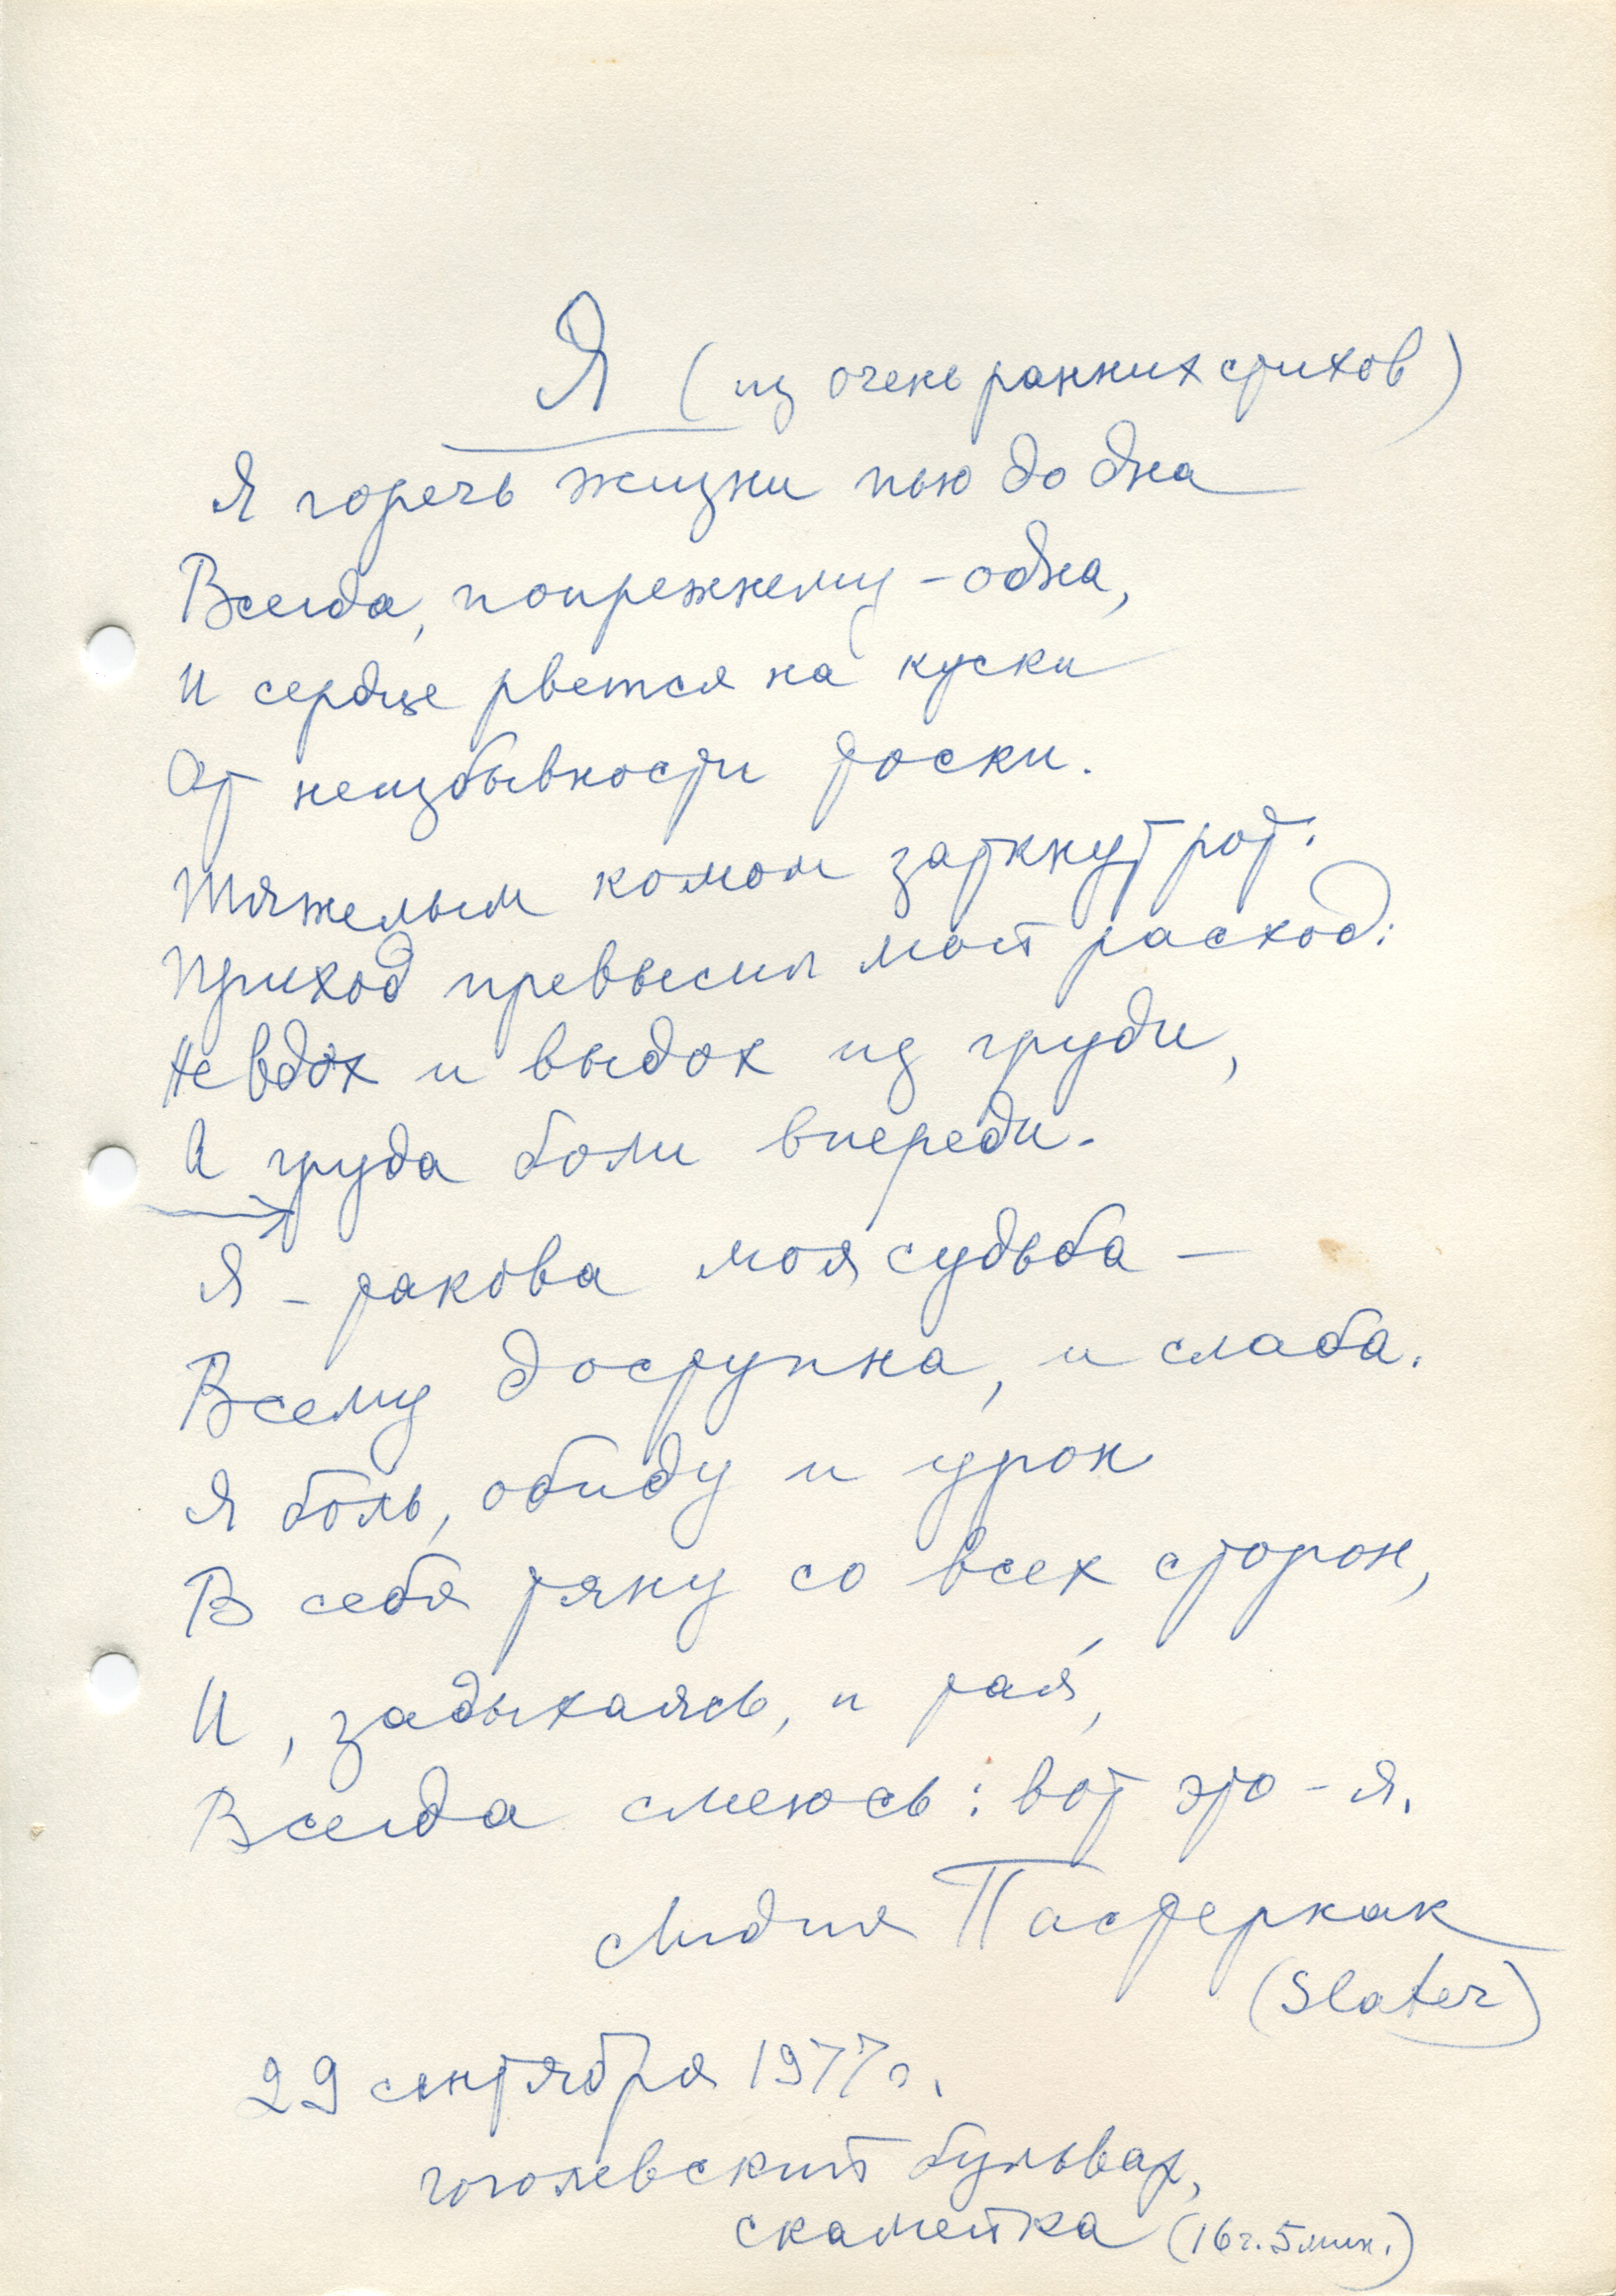 Я (из очень ранних стихов)
Я горечь жизни пью до дна
Всегда, попрежнему – одна,
И сердце рвется на куски
От неизбывности тоски.
Тяжелым комом заткнут рот:
Приход превысил мой расход:
Не вдох и выдох из груди,
А груда боли впереди.
Я – такова моя судьба –
Всему доступна, и слаба.
Я боль, обиду и урон
В себя тяну со всех сторон,
И, задыхаясь, и тая,
Всегда смеюсь: вот это – я.
Лидия Пастернак
(Slater)
29 сентября 1977 г.
гоголевский бульвар,
скамейка (16 ч. 5 мин.)